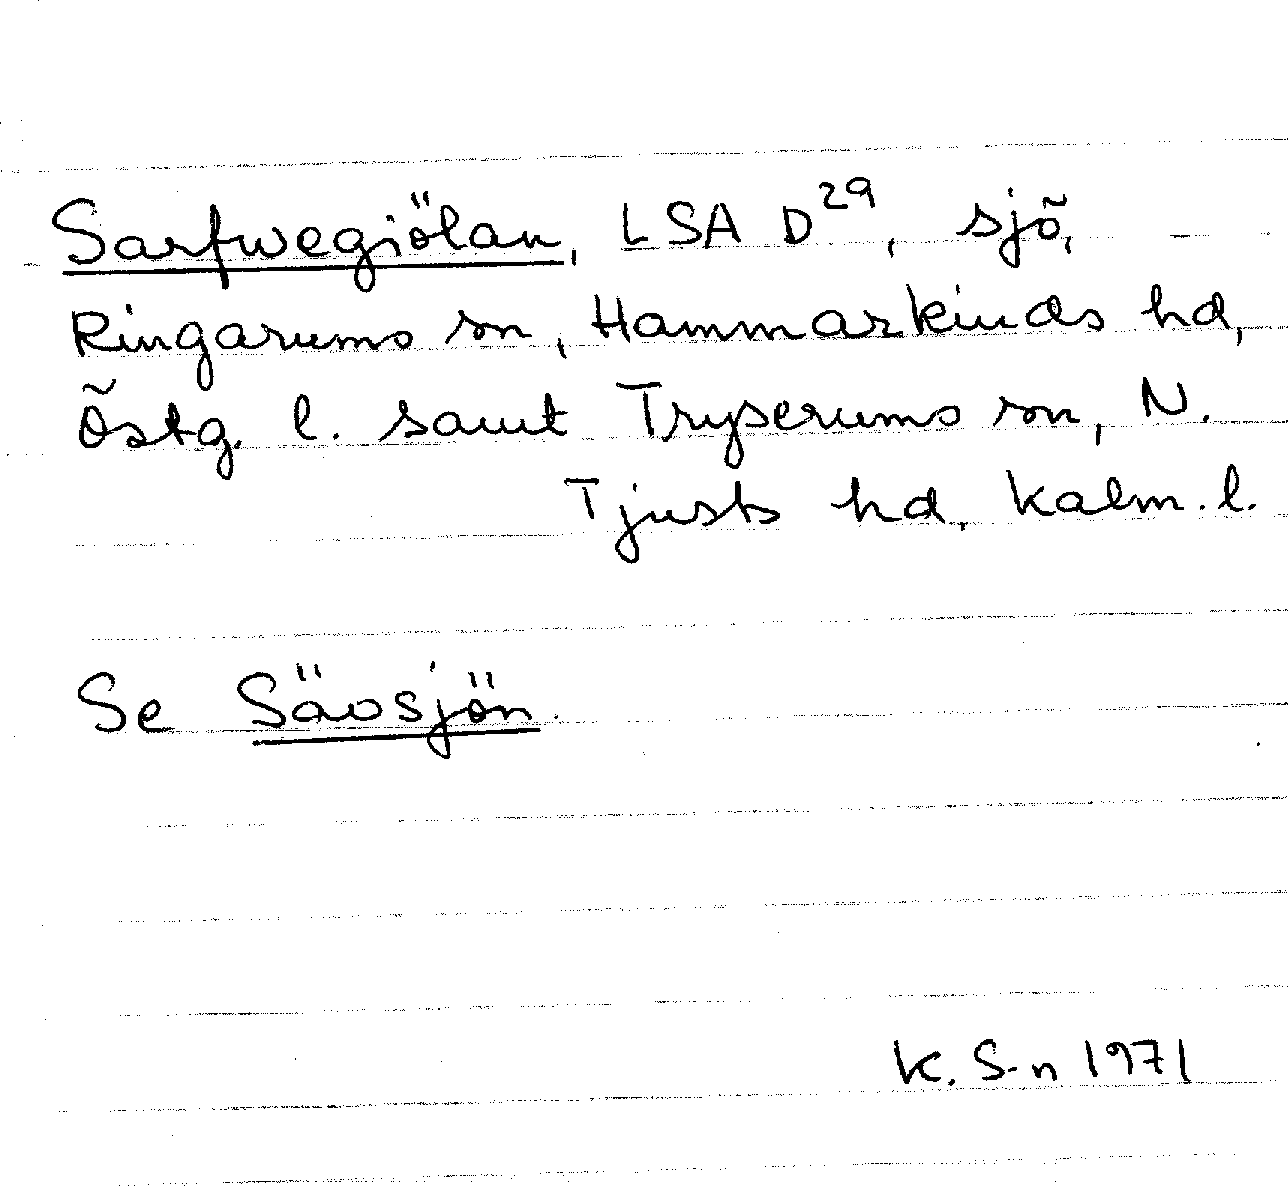 Sarfwegiölan, LSA D29, sjö,
Ringarums sn, Hammarkinds hd,
Östg. l. samt Tryserums sn, N.
Tjusts hd, Kalm. l.
Se Sävsjön.
K. S-n 1971